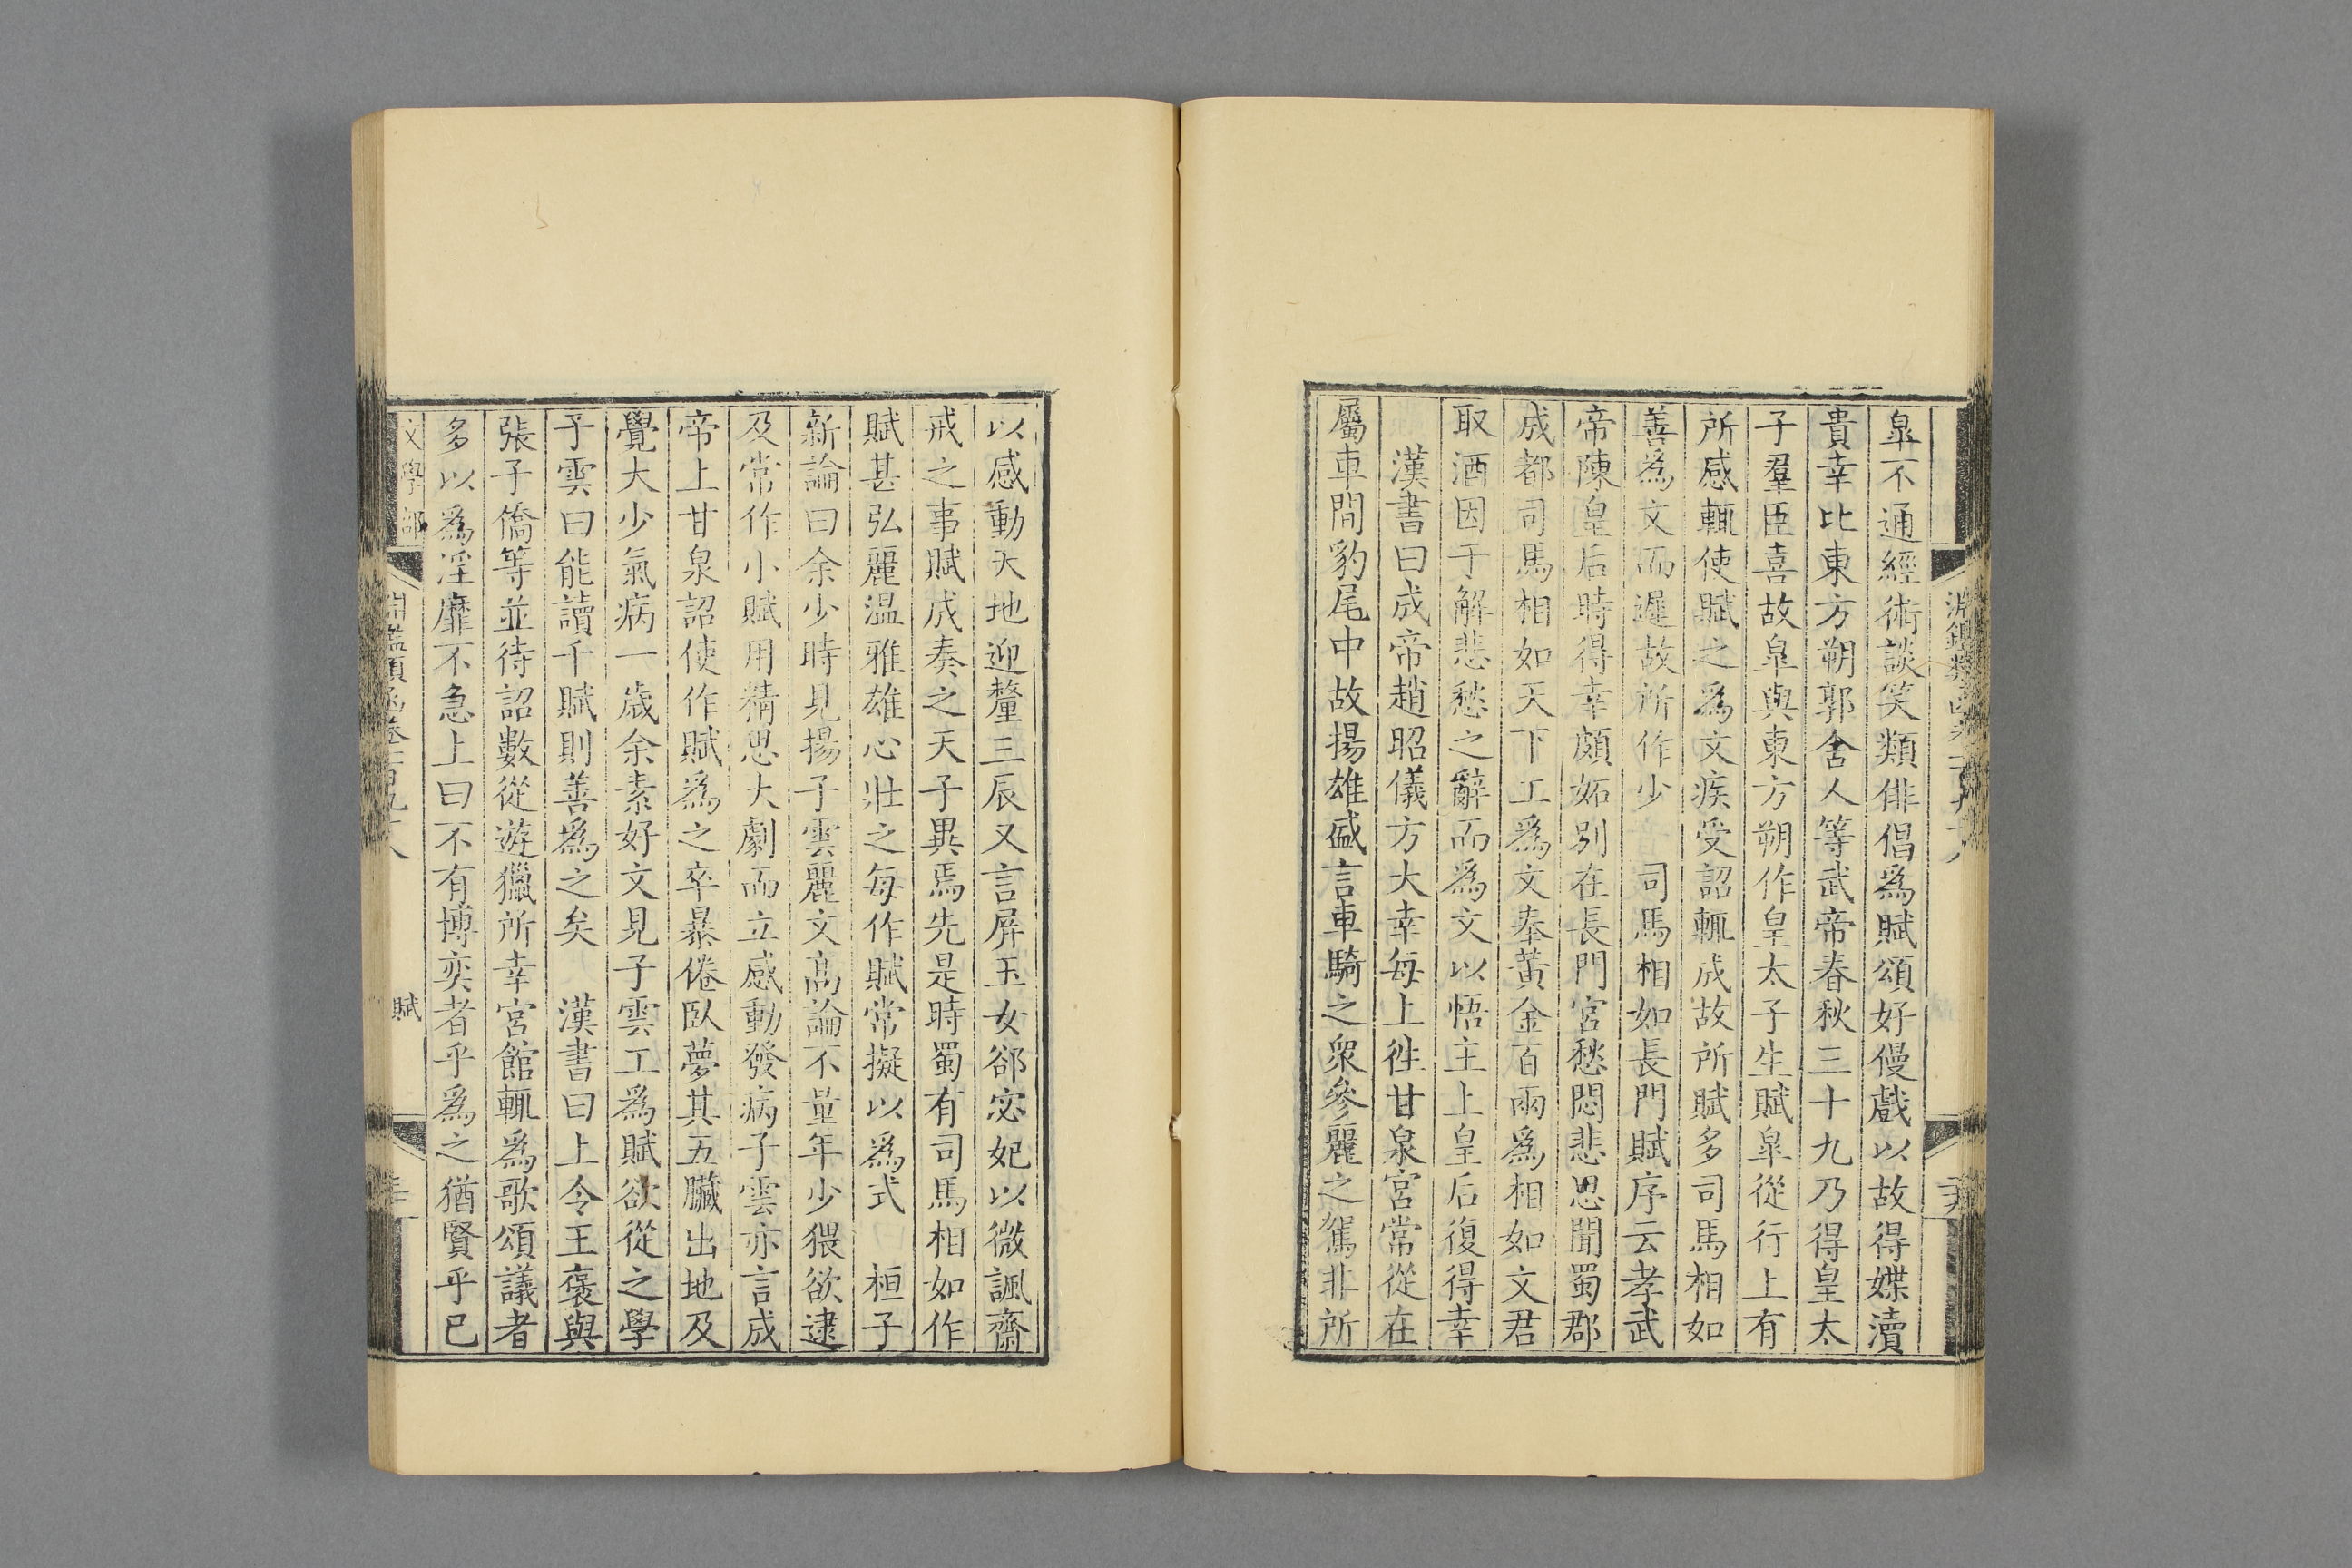 皐不通經術談笑類俳倡爲賦頌好慢戲以故得媟瀆
貴幸比東方朔郭舍人等武帝春秋三十九乃得皇太
子羣臣喜故皐與東方朔作皇太子生賦皐從行上有
所感輒使賦之爲文疾受詔輒成故所賦多司馬相如
善爲文而遲故所作少　司馬相如長門賦序云孝武
帝陳皇后時得幸頗妬别在長門宮愁悶悲思聞蜀郡
成都司馬相如天下工爲文奉黄金百兩爲相如文君
取酒因于解悲愁之辭而爲文以悟主上皇后復得幸
漢書曰成帝趙昭儀方大幸每上徃甘泉宮常從在
屬車間豹尾中故揚雄盛言車騎之衆參麗之駕非所
以感動天地迎釐三辰又言屏玉女郤宓妃以微諷齋
戒之事賦成奏之天子異焉先是時蜀有司馬相如作
賦甚弘麗温雅雄心壯之每作賦常擬以爲式　桓子
新論曰余少時見揚子雲麗文高論不量年少猥欲逮
及常作小賦用精思大劇而立感動發病子雲亦言成
帝上甘泉詔使作賦爲之卒暴倦臥夢其五臟出地及
覺大少氣病一歲余素好文見子雲工爲賦欲從之學
子雲曰能讀千賦則善爲之矣　漢書曰上令王褒與
張子僑等並待詔數從遊獵所幸宮館輒爲歌頌議者
多以爲淫靡不急上曰不有博奕者乎爲之猶賢乎已
文學部
賦